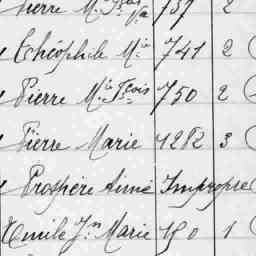 Pierre M.ie F.çois 737 2
Théophile M.ie 741 2
Pierre M.ie F.çois 750 2
Pierre Marie 4282 3
Prosphère Aimé Impropre
Emile J.n Marie 1